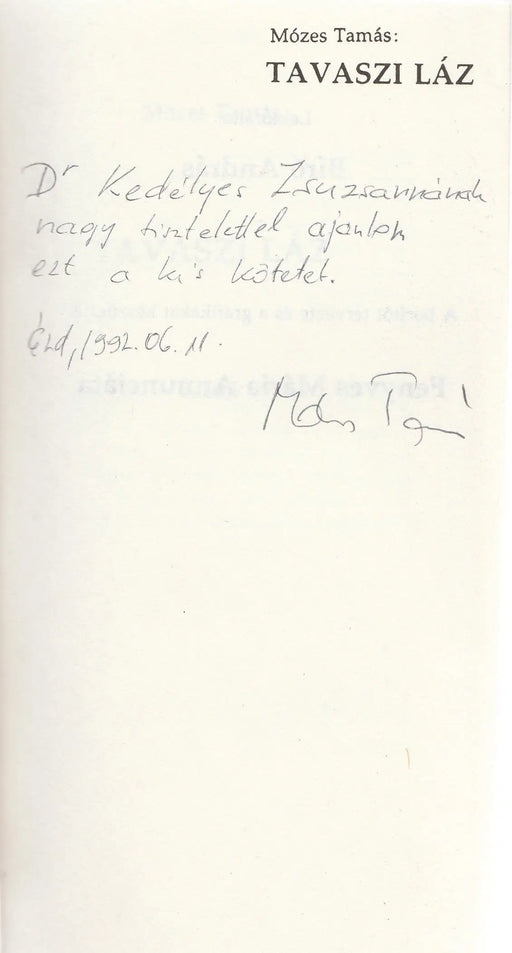 Mózes Tamás:
TAVASZI LÁZ
Dr Kedélyes Zsuzsannának
nagy tisztelettel ajánlom
ezt a kis kötetet.
Érd, 1992. 06. 11.
Mózes Tamás